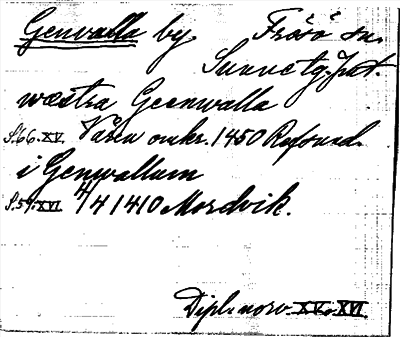 Genvalla by Frösö sn.
Sunne tg. Jtl.
wæstra Geenwalla
S. 66. XV. Våren omkr. 1450 Refsund.
i Genwallum
S. 59. XVI 4/4 1410 Mordvik.
Dipl. norv. XV o. XVI.